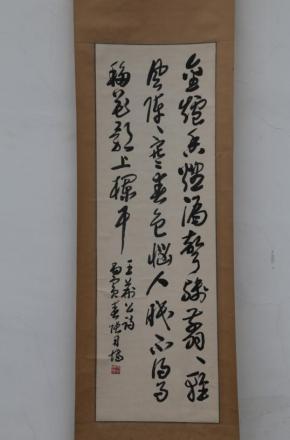 金爐香燼漏聲殘翦〻輕
風陣〻寒春色惱人眠不得月
移花影上欄干
王荊公詩
丙寅春